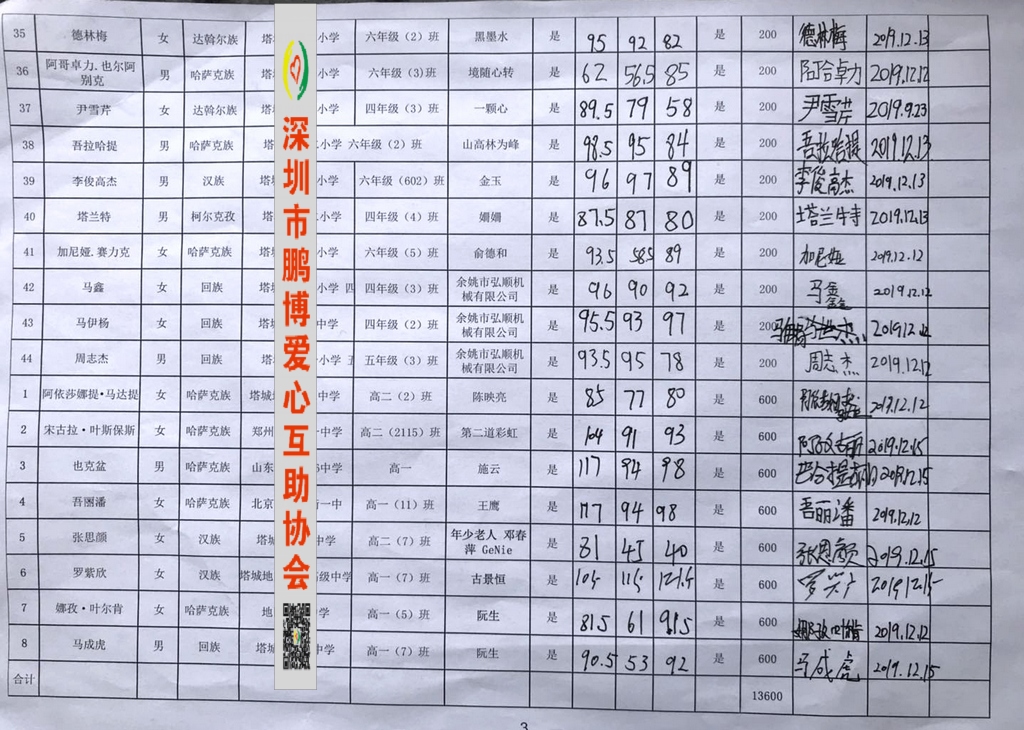 35 德林梅 女 达斡尔族 塔 小学 六年级（2）班 黑墨水 是 95 92 82 是 200 德林梅 2019.12.13
36 阿哥卓力.也尔阿别克 男 哈萨克族 塔 小学 六年级（3)班 境随心转 是 62 56.5 85 是 200 阿合卓力 2019.12.12
37 尹雪芹 女 达斡尔族 塔 小学 四年级（3）班 一颗心 是 89.5 79 58 是 200 尹雪芹 2019.9.23
38 吾拉哈提 男 哈萨克族 塔 小学 六年级（2）班 山高林为峰 是 98.5 95 84 是 200 吾拉哈提 2019.12.13
39 李俊高杰 男 汉族 塔 小学 六年级（602）班 金玉 是 96 97 89 是 200 李俊高杰 2019.12.13
40 塔兰特 男 柯尔克孜 塔 小学 四年级（4）班 姗姗 是 87.5 87 80 是 200 塔兰特 2019.12.13
41 加尼娅.赛力克 女 哈萨克族 塔 小学 六年级（5）班 俞德和 是 93.5 58.5 89 是 200 加尼娅 2019.12.12
42 马鑫 女 回族 塔 小学 四 四年级（3）班 余姚市弘顺机械有限公司 是 96 90 92 是 200 马鑫 2019.12.12
43 马伊杨 女 回族 塔 中学 四年级（2）班 余姚市弘顺机械有限公司 是 95.5 93 97 是 200 2019.12.12
44 周志杰 男 回族 塔 小学 五年级（3）班 余姚市弘顺机械有限公司 是 93.5 95 78 是 200 周志杰 2019.12.12
1 阿依莎娜提·马达提 女 哈萨克族 塔城 中学 高二（2）班 陈映亮 是 85 77 80 是 600 2019.12.12
2 宋古拉·叶斯保斯 女 哈萨克族 郑州 中学 高二（2115）班 第二道彩虹 是 104 91 93 是 600 2019.12.15
3 也克盆 男 哈萨克族 山东 中学 高一 施云 是 117 94 98 是 600 2019.12.15
4 吾丽潘 女 哈萨克族 北京 一中 高一（11）班 王鹰 是 117 94 98 是 600 吾丽潘 2019.12.12
5 张思颜 女 汉族 塔城 中学 高二（7）班 年少老人 邓春萍 GeNie 是 81 45 40 是 600 张思颜 2019.12.15
6 罗紫欣 女 汉族 塔城地 高级中学 高一（7）班 古景恒 是 104 114 121.5 是 600 2019.12.15
7 娜孜·叶尔肯 女 哈萨克族 地 高一（5）班 阮生 是 81.5 61 91.5 是 600 娜孜叶尔肯 2019.12.12
8 马成虎 男 回族 塔城 中学 高一（7）班 阮生 是 90.5 53 92 是 600 马成虎 2019.12.15
合计 13600
深圳市鹏博爱心互助协会
3